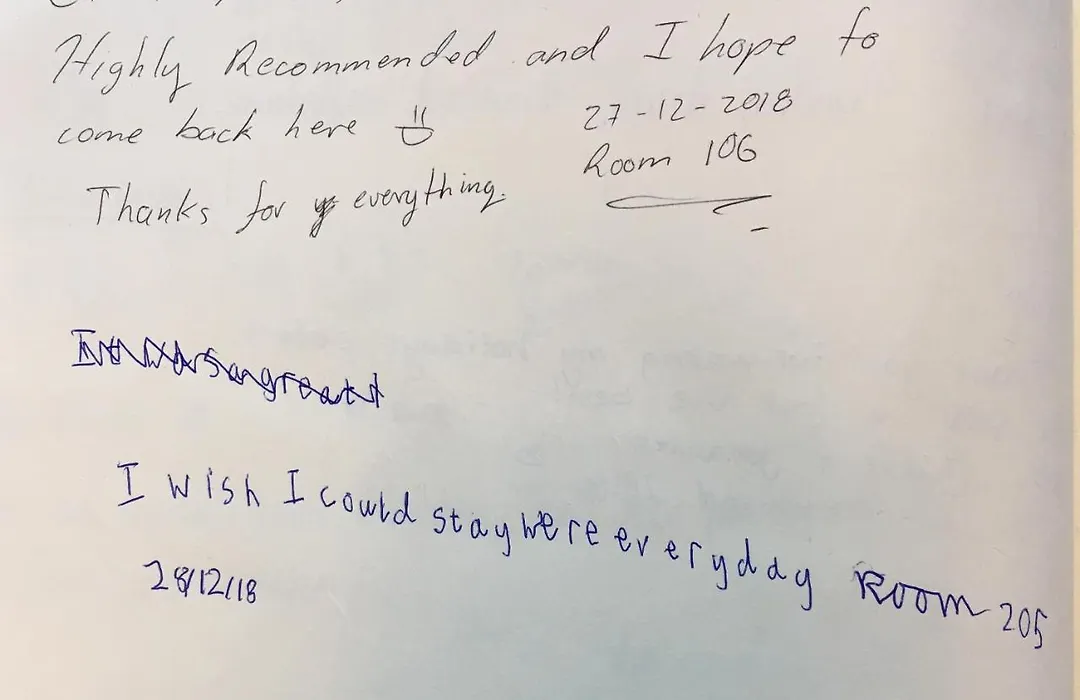 Highly Recommended and I hope to
come back here
27-12-2018
Room 106
Thanks for everything.
I wish I could stay here everyday Room 205
28/12/18